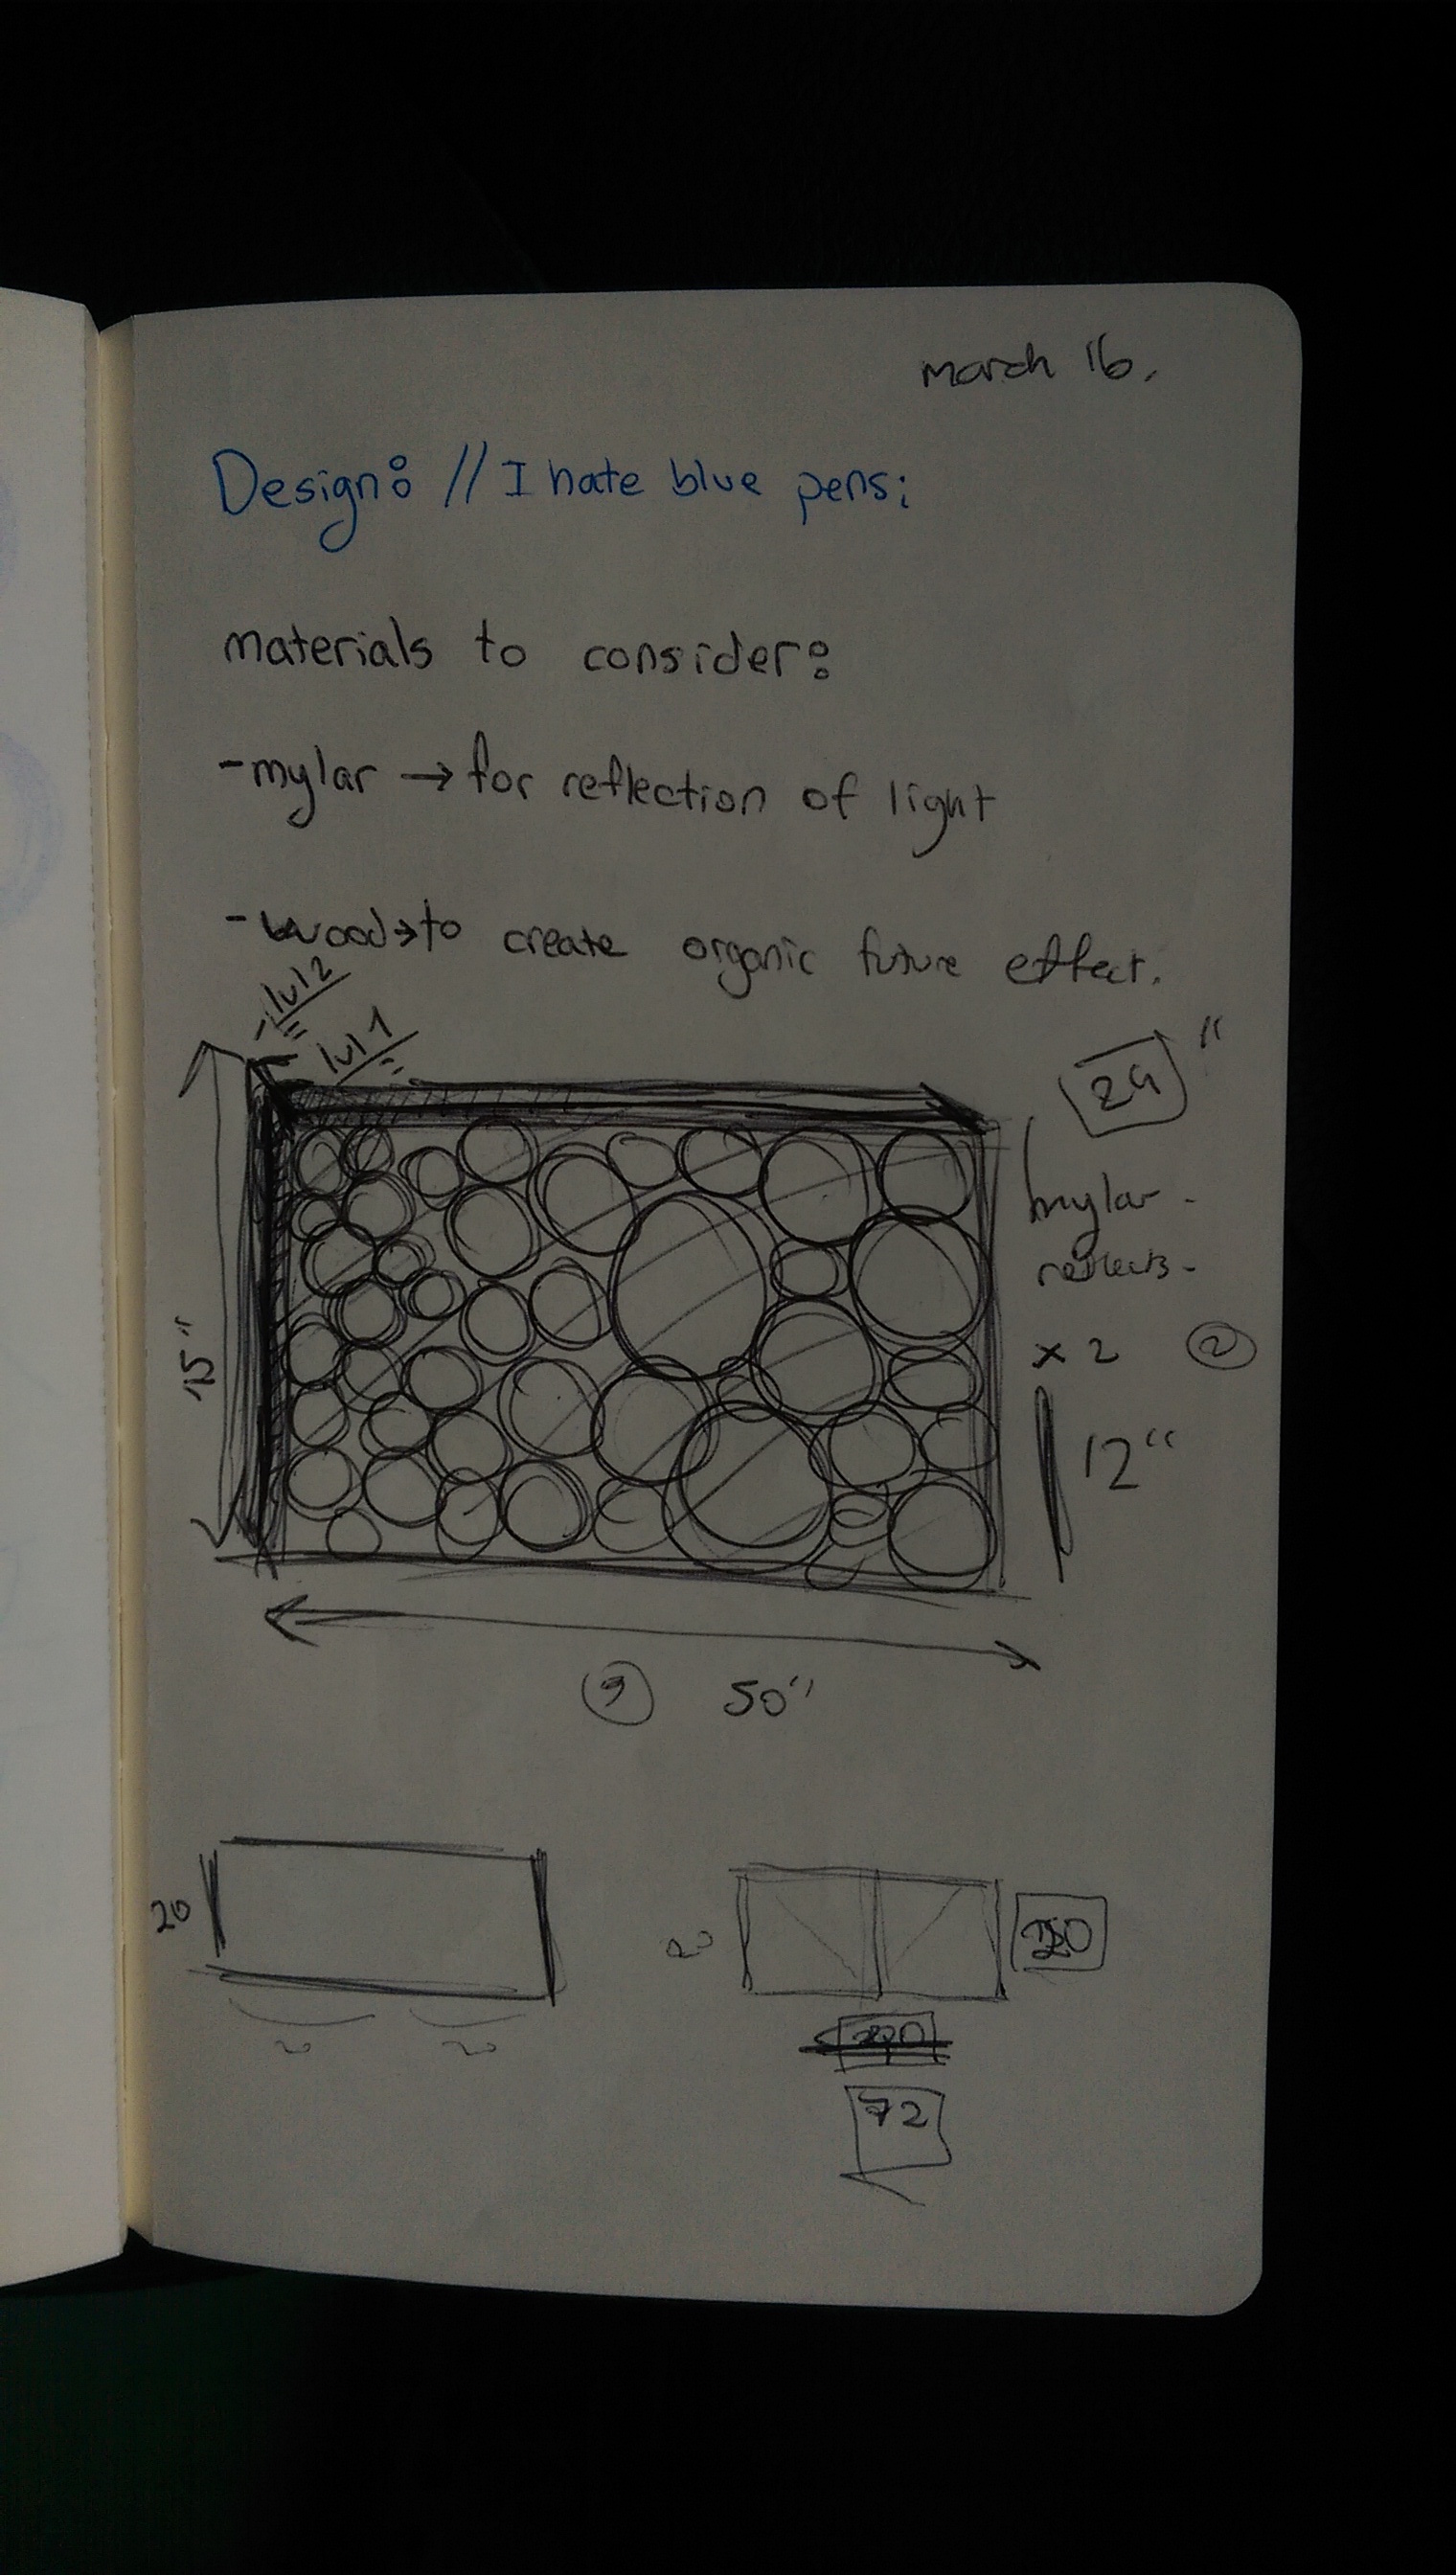 march 16.
Design: // I hate blue pens;
materials to consider:
- mylar → for reflection of light
- wood → to create organic future effect.
lvl 2
lvl 1
24"
mylar -
x 2 2
15"
12"
50"
20
20
72